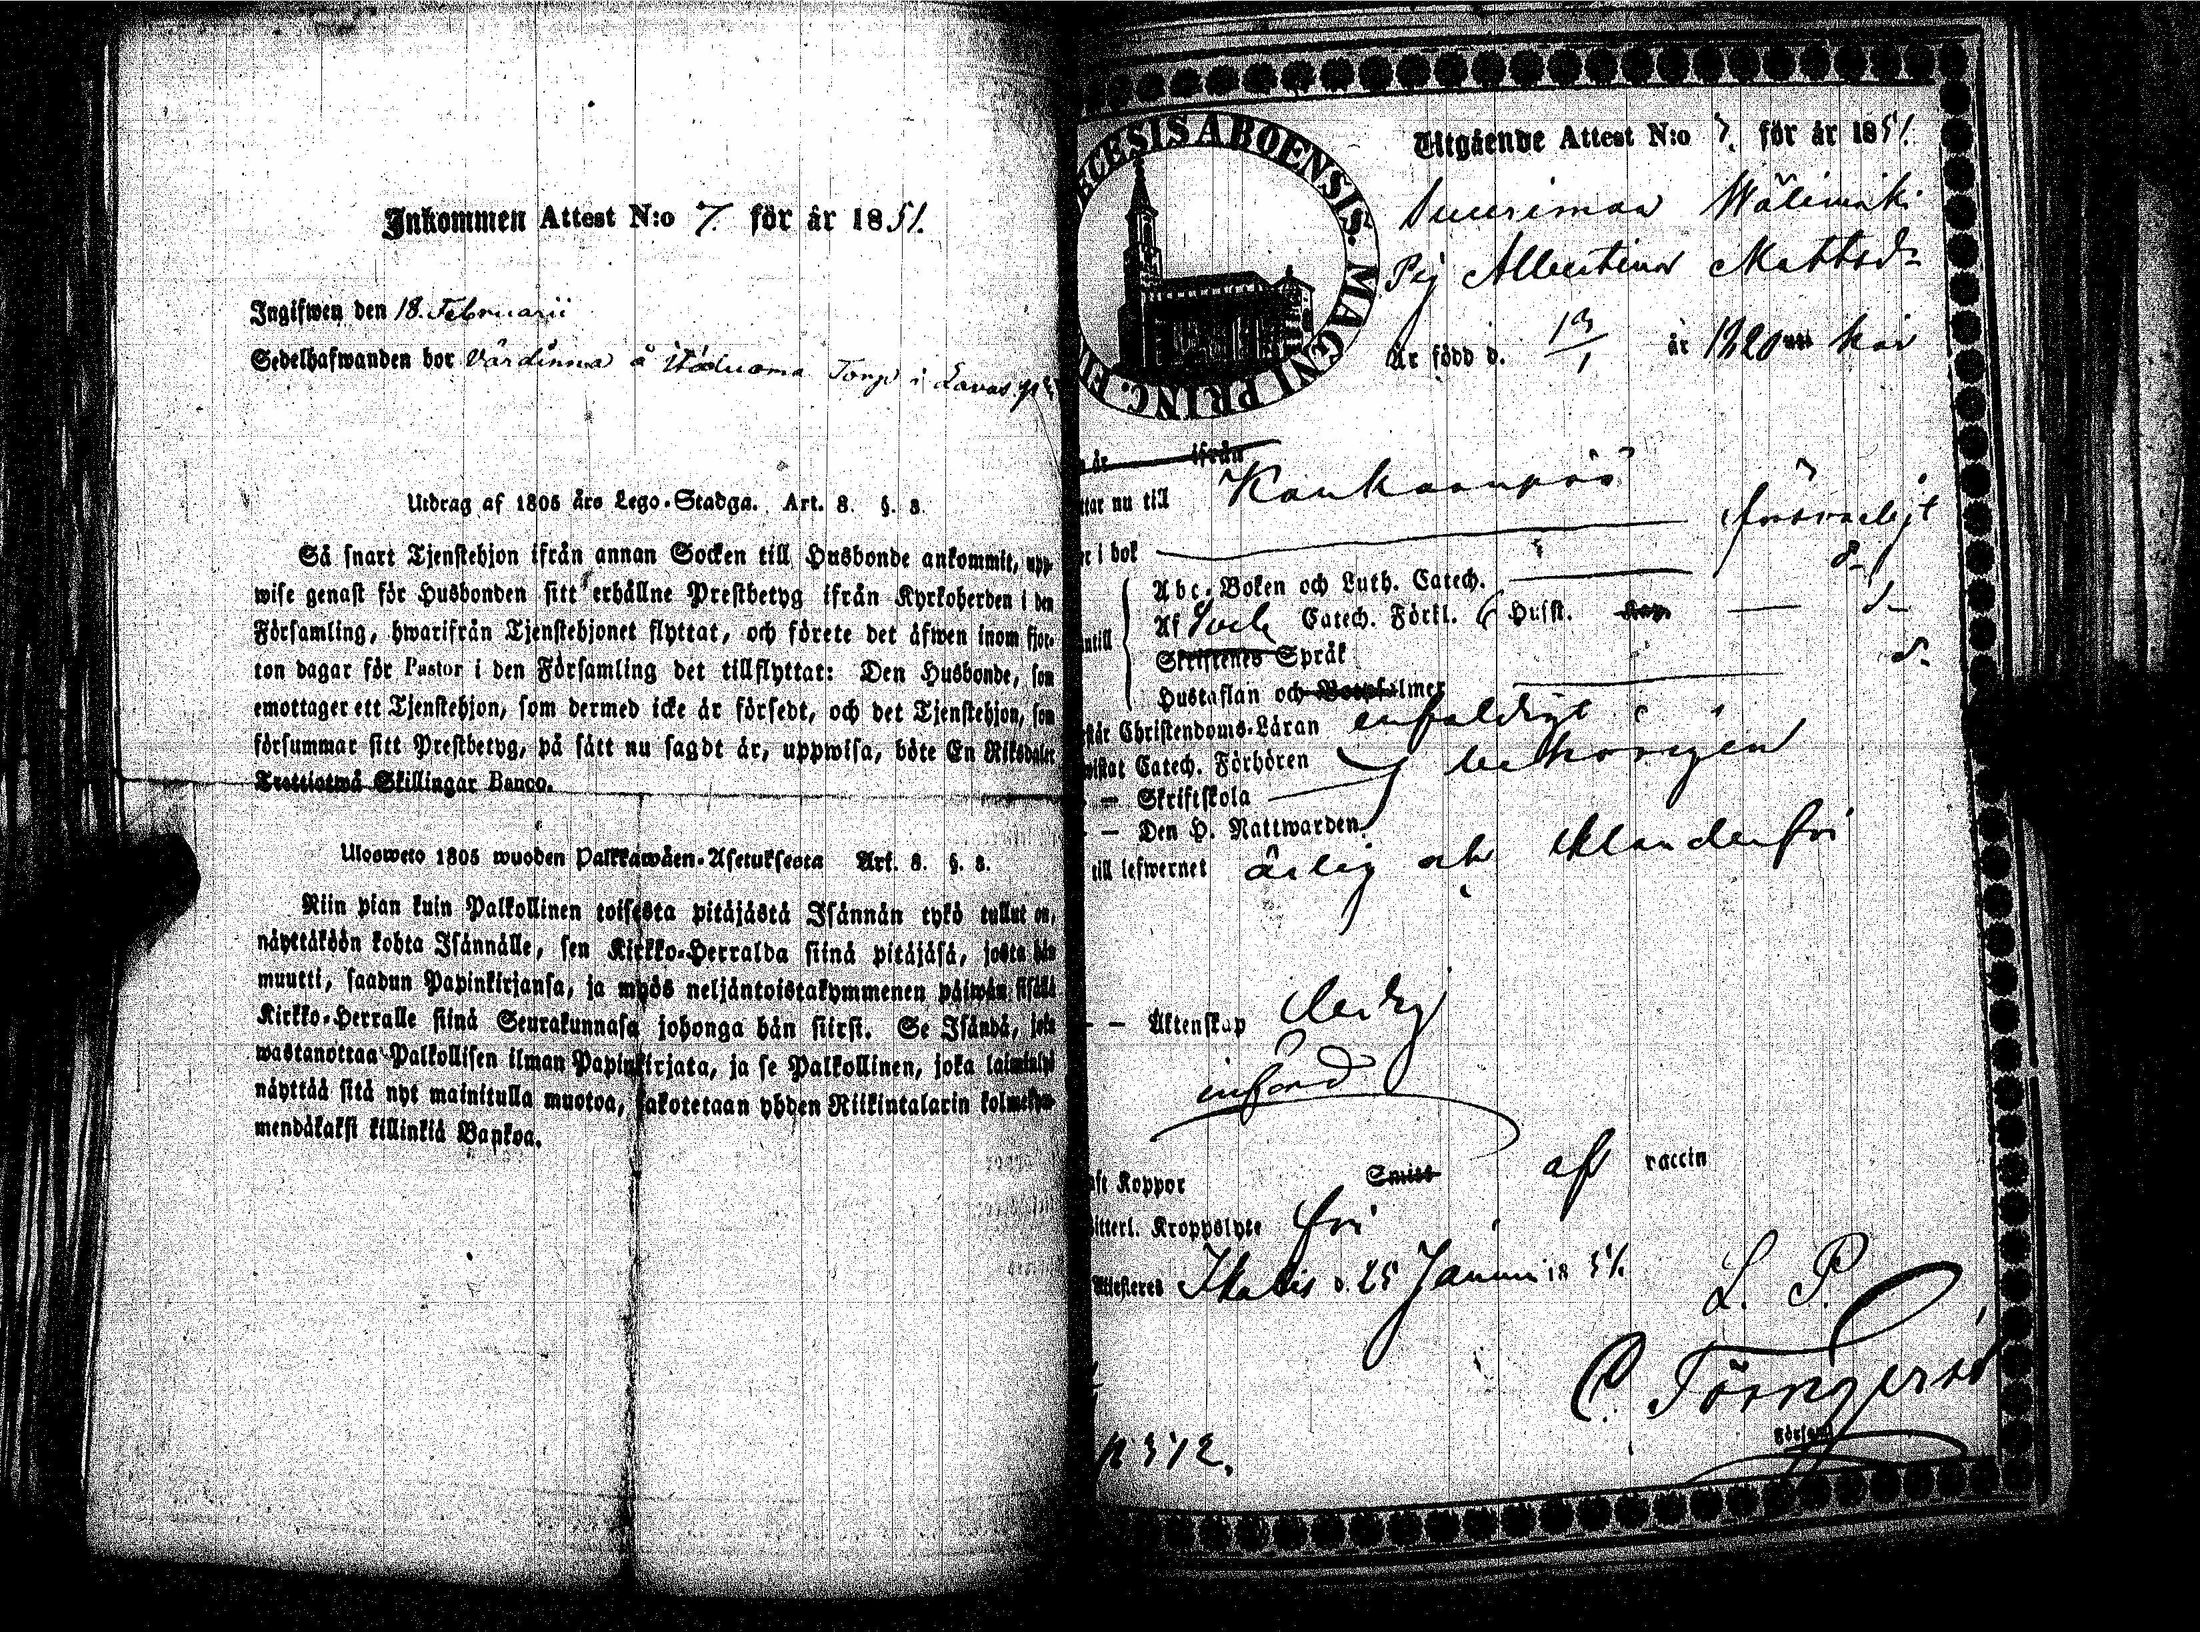 Inkommen Attest N:o 7. för år 1851.
Ingifwen den 18. Februarii
Sedelhafwanden bor Värdinna å Torp i
Utdrag af 1805 års Lego-Stadga. Art. 8. §. 8.
Så snart Tjenstehjon ifrån annan Socken till Husbonde ankommit, upp-
wise genast för Husbonden sitt erhållne Prestbetyg ifrån Kyrkoherden i den
Församling, hwarifrån Tjenstehjonet flyttat, och förete det äfwen inom fjor-
ton dagar för Pastor i den Församling det tillflyttat: Den Husbonde, som
emottager ett Tjenstehjon, som dermed icke är försedt, och det Tjenstehjon, som
försummar sitt Prestbetyg, på sätt nu sagdt är, uppwisa, böte En Riksdaler
Trettiotwå Skillingar Banco.
Ulosweto 1805 wuoden Palkkawäen-Asetuksesta Art. 8. §. 8.
Niin pian kuin Palkollinen toisesta pitäjästä Isännän tykö tullut on,
näyttäköön kohta Isännälle, sen Kirkko-Herralda siinä pitäjäsä, josta hän
muutti, saadun Papinkirjansa, ja myös neljäntoistakymmenen päiwän sisällä
Kirkko-Herralle siinä Seurakunnasa johonga hän siirsi. Se Isändä, joka
wastanottaa Palkollisen ilman Papinkirjata, ja se Palkollinen, joka laiminlyö
näyttää sitä nyt mainitulla muotoa, sakotetaan yhden Riikintalarin kolmekym-
mendäkaksi killinkiä Bankoa.
ECESIS ABOENSIS. MAGNI PRINC. FI
Utgående Attest N:o 7. för år 1851.
Suurimaa Wälimäki
Pig Albertina Mattsd:
är född d. 13/1 år 1820 här
är ifrån
ttar nu till Kankaanpää
er i bok försvarligt
Abc-Boken och Luth. Catech. d-
Af Sveb. Catech. Förkl. Husst. d-
Skriftenes Språk
Hustaflan och Botpsalmer d-
står Christendoms-Läran enfaldigt
wistat Catech. Förhören behörigen
— Skriftskola
— Den H. Nattwarden
till lefwernet ärlig och klanderfri
— Äktenskap ledig
införd
aft Koppor Smitt af vaccin
Witterl. Kroppslyte fri
Attesteres Ikalis d. 25 Januari 1851.
L. P.
C. Törngren
Församl
p 312.